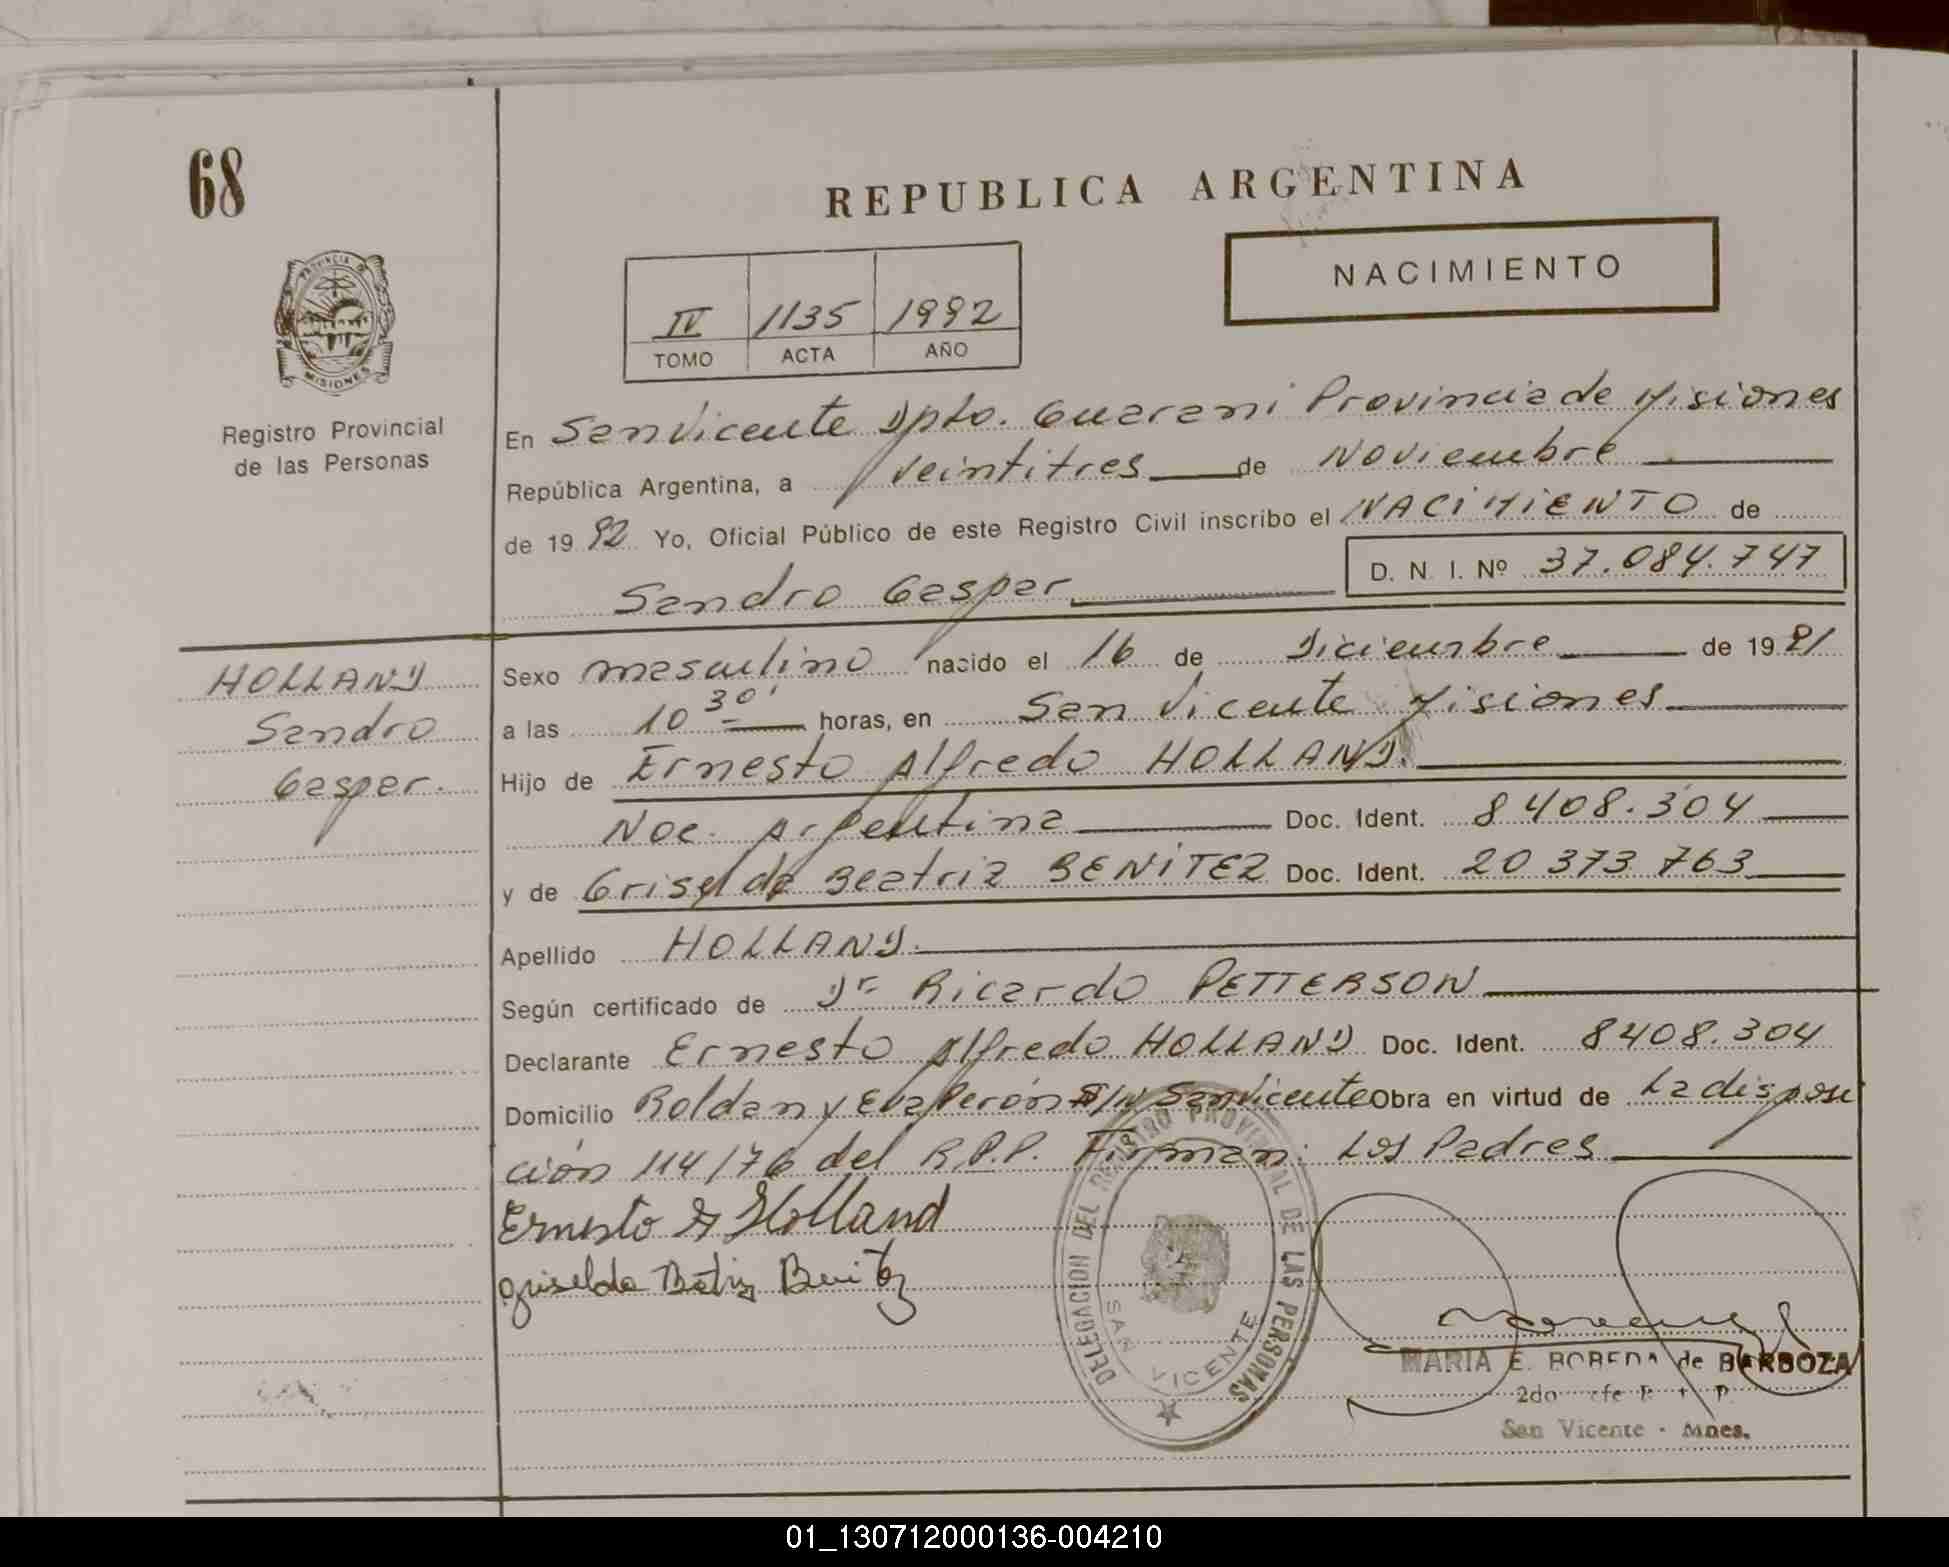 68
REPUBLICA ARGENTINA
PROVINCIA DE
MISIONES
Registro Provincial
de las Personas
NACIMIENTO
IV 1135 1992
TOMO ACTA AÑO
En San Vicente Dpto. Guarani Provincia de Misiones
República Argentina, a veintitres de Noviembre
de 1992 Yo, Oficial Público de este Registro Civil inscribo el NACIMIENTO de
D. N. I. Nº 37.084.747
Sandro Gasper
HOLLAND
Sandro
Gasper.
Sexo masculino nacido el 16 de Diciembre de 1991
a las 10 30' horas, en San Vicente Misiones
Hijo de Ernesto Alfredo HOLLAND.
Nac. Argentina Doc. Ident. 8408.304
y de Griselda Beatriz BENITEZ Doc. Ident. 20 373 763
Apellido HOLLAND.
Según certificado de Dr Ricardo PETTERSON
Declarante Ernesto Alfredo HOLLAND Doc. Ident. 8408.304
Domicilio Roldan y Eva Perón S/N San Vicente Obra en virtud de La disposi
ción 114/76 del R.P.P. Firman: Los Padres
Ernesto A Holland
Griselda Batriz Benitez
DELEGACION DEL REGISTRO PROVINCIAL DE LAS PERSONAS
SAN VICENTE
MARIA E. BOBEDA de BARBOZA
2do
San Vicente - Mnes.
01_130712000136-004210